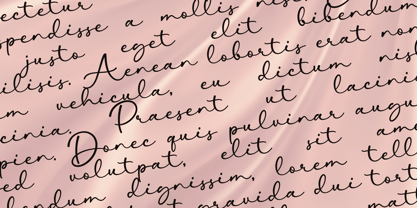 ectetur a mollis nis
spendisse eget elit bibendum
justo Aenean lobortis erat non
ilisis. vehicula, eu dictum nis
m Praesent ut lacini
cinia, Donec quis pulvinar augu
pien. volutpat, elit sit am
sed dignissim, lorem tell
endum gravida dui tort
matt